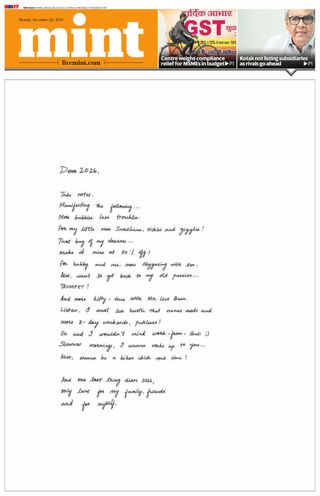 Monday, December 22, 2025
mint
livemint.com
आभार
GST
Centre weighs compliance
relief for MSMEs in budget ▶P1
Kotak not listing subsidiaries
as rivals go ahead ▶P1
Dear 2026,
Take notes.
Manifesting the following...
More bubbles less troubles.
For my little miss Sunshine, tickles and giggles!
That bag of my dreams...
make it mine at 50% off!
For hubby and me, more
Also, want to get back to my old passion...
TRUMPET!
And more kitty-time with Mr. Coco Bean.
Listen, I want less hustle that never ends and
more 3-day weekends, puhleez!
Oh and I wouldn't mind work-from-Bali :)
Slowmo mornings, I wanna wake up to you...
Also, wanna be a biker chick this time!
And one last thing dear 2026,
only love for my family, friends
and for myself.